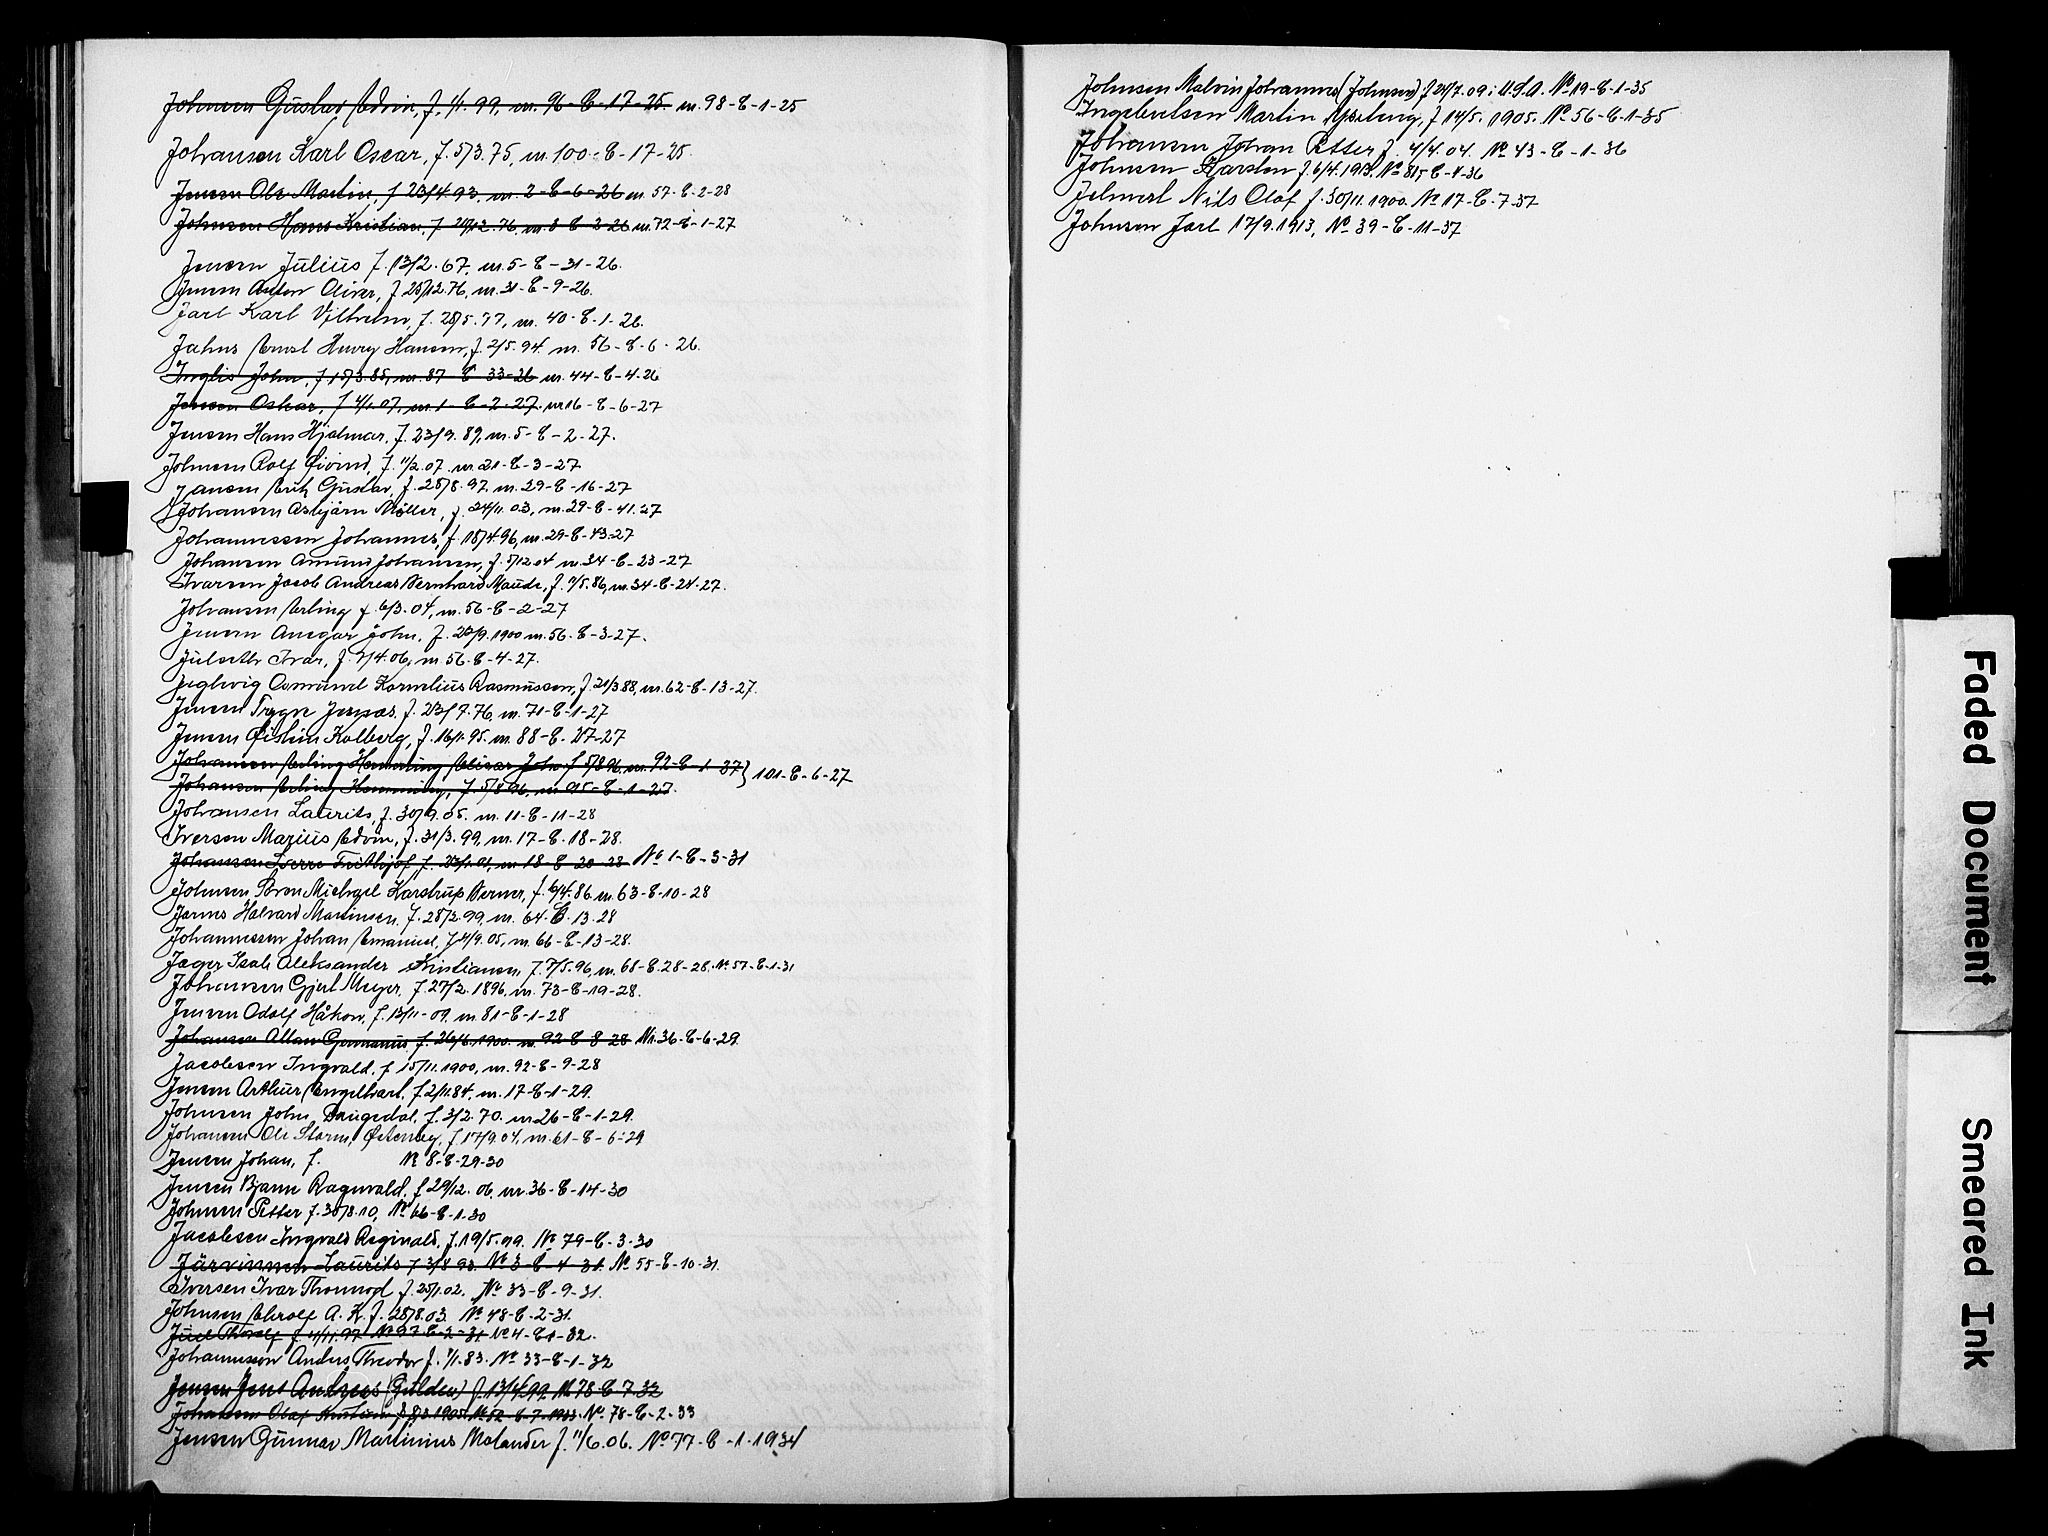 Johnsen Gustav Edvin, f. 1/1. 99, nr. 96-E-17-25. nr. 98-E-1-25
Johansen Karl Oscar, f. 5/3. 75, nr. 100-E-17-25.
Jensen Ole Martin, f 23/4. 93. nr. 2-E-6-26 nr. 57-E-2-28
Johnsen Hans Kristian, f 20/12. 76, nr. 8-E-3-26 nr. 72-E-1-27
Jensen Julius f. 13/2. 67, nr. 5-E-31-26.
Jensen Anton Oliver, f 25/12. 76, nr. 31-E-9-26.
Jarl Karl Vilhelm, f. 28/5. 77, nr. 40-E-1-26.
Jahns Ernst Henry Hansen, f. 2/5. 94. nr. 56-E-6-26.
Inglis John, f 15/3. 85, nr. 87-E-33-26 nr. 44-E-4-26
Jensen Oskar, f 4/1. 07, nr. 1-E-2-27. nr 16-E-6-27
Jensen Hans Hjalmar, f. 23/9. 89, nr. 5-E-2-27.
Johnsen Rolf Øivind, f. 11/2. 07. nr. 21-E-3-27
Jansen Erik Gustav, f. 28/8. 97. nr. 29-E-16-27
Johansen Asbjørn Møller, f. 24/11. 03, nr. 29-E-41.27
Johannessen Johannes, f. 18/4. 96, nr. 29-E-43-27
Johansen Amund Johansen, f. 5/12 04 nr. 34-E-23-27
Ivarsen Jacob Andreas Bernhard Maude, f. 9/5. 86, nr. 34-E-24-27.
Johansen Erling f. 6/3. 04, nr. 56-E-2-27
Jensen Ansgar John, f. 23/9. 1900 nr. 56-E-3-27.
Julseth Ivar, f. 7/4. 06, nr. 56-E-4-27.
Osmund Kornelius Rasmussen, f. 21/3 88, nr. 62-E-13-27.
Jensen Trygve Jespas. f. 23/7. 76, nr. 71-E-1-27
Jensen Øistein Kolberg, f. 16/11. 95. nr. 88-E-27-27
Johansen Erling Hemming John f 5/8 96, nr. 92-E-1-27 } 101-E-6-27
Johansen Erling Hemming, f. 5/8 96, nr. 95-E-1-27.
Johansen Laurits, f. 30/9. 05. nr. 11-E-11-28
Iversen Marius Edvin, f. 31/3. 99, nr. 17-E-18-28.
Johansen Sverre Frithjof, f. 23/1. 01, nr. 18-E-20-28 No 1-E-3-31
Johnsen Bron Michael Karstrup Werner, f. 6/4. 86 nr. 63-E-10-28
Jarnes Halvard Martinsen, f. 28/2. 99, nr. 64-E-13-28
Johannessen Johan Emanuel, f 4/9. 05, nr. 66-E-13-28.
Jæger Isak Aleksander Kristiansen f. 7/5. 96, nr. 68-E-28-28. No. 57-E-1-31
Johansen Gjert Meyer, f. 27/2. 1896, nr. 73-E-19-28.
Jensen Adolf Håkon, f. 13/11-09. nr 81-E-1-28
Johansen Allan Germanius f. 26/6. 1900. nr. 92-E-8-28 Nr. 36-E-6-29.
Jacobsen Ingvald, f 15/11. 1900, nr. 92-E-9-28
Jensen Arthur Engelhart, f 2/11. 84, nr. 17-E-1-29.
Johnsen John Drugsdal, f. 3/2. 70. nr 26-E-1-29.
Johansen Ole Storm, Østenby, f 17/9. 04, nr. 61-E-6-29
Jensen Johan, f. No 8-E-29-30
Jensen Bjarne Ragnvald, f 29/12. 06, nr. 36-E-14-30
Johnsen Petter f. 30/8. 10, No 66-E-1-30
Jacobsen Ingvald Reginald, f. 19/5. 09. No 79-E-3-30
Järvinnen Laurits f 3/8 93. No 3-E-4-31. No 55-E-10-31.
Iversen Ivar Thormod f. 25/1. 02. No 33-E-9-31.
Johnsen A. K. f. 28/8. 03. No 48-E-2-31.
Juel Thoralf f. 4/11. 97 No 57-E-2-31 No 4-E1-32.
Johannesson Anders Theodor f. 7/1. 83. No 33-E-1-32
Jensen Jens Andreas (Gulden) f. 13/4 99. No 78-E-7-32
Johansen Olaf Kristian f 1905. No 52-E-7-1933. No. 78-E-2-33
Jensen Gunnar Martinius Molander f. 11/6. 06. No 77-E-1-1934
Johnsen Malvin Johannes (Johnsen) f 24/7. 09 i U.S.A. No 19-E-1-35
Ingebretsen Martin f 14/5. 1905. No 56-E-1-35
Johansen Johan Petter f. 4/4. 04. No 43-E-1-36
Johnsen Karsten f. 6/4. 1913. No 81, E-4-36
Jelmert Nils Olaf f. 30/11. 1900. No 17-E-7-37
Johnsen Jarl 17/9. 1913, No 39-E-11-37
Faded Document
Smeared Ink